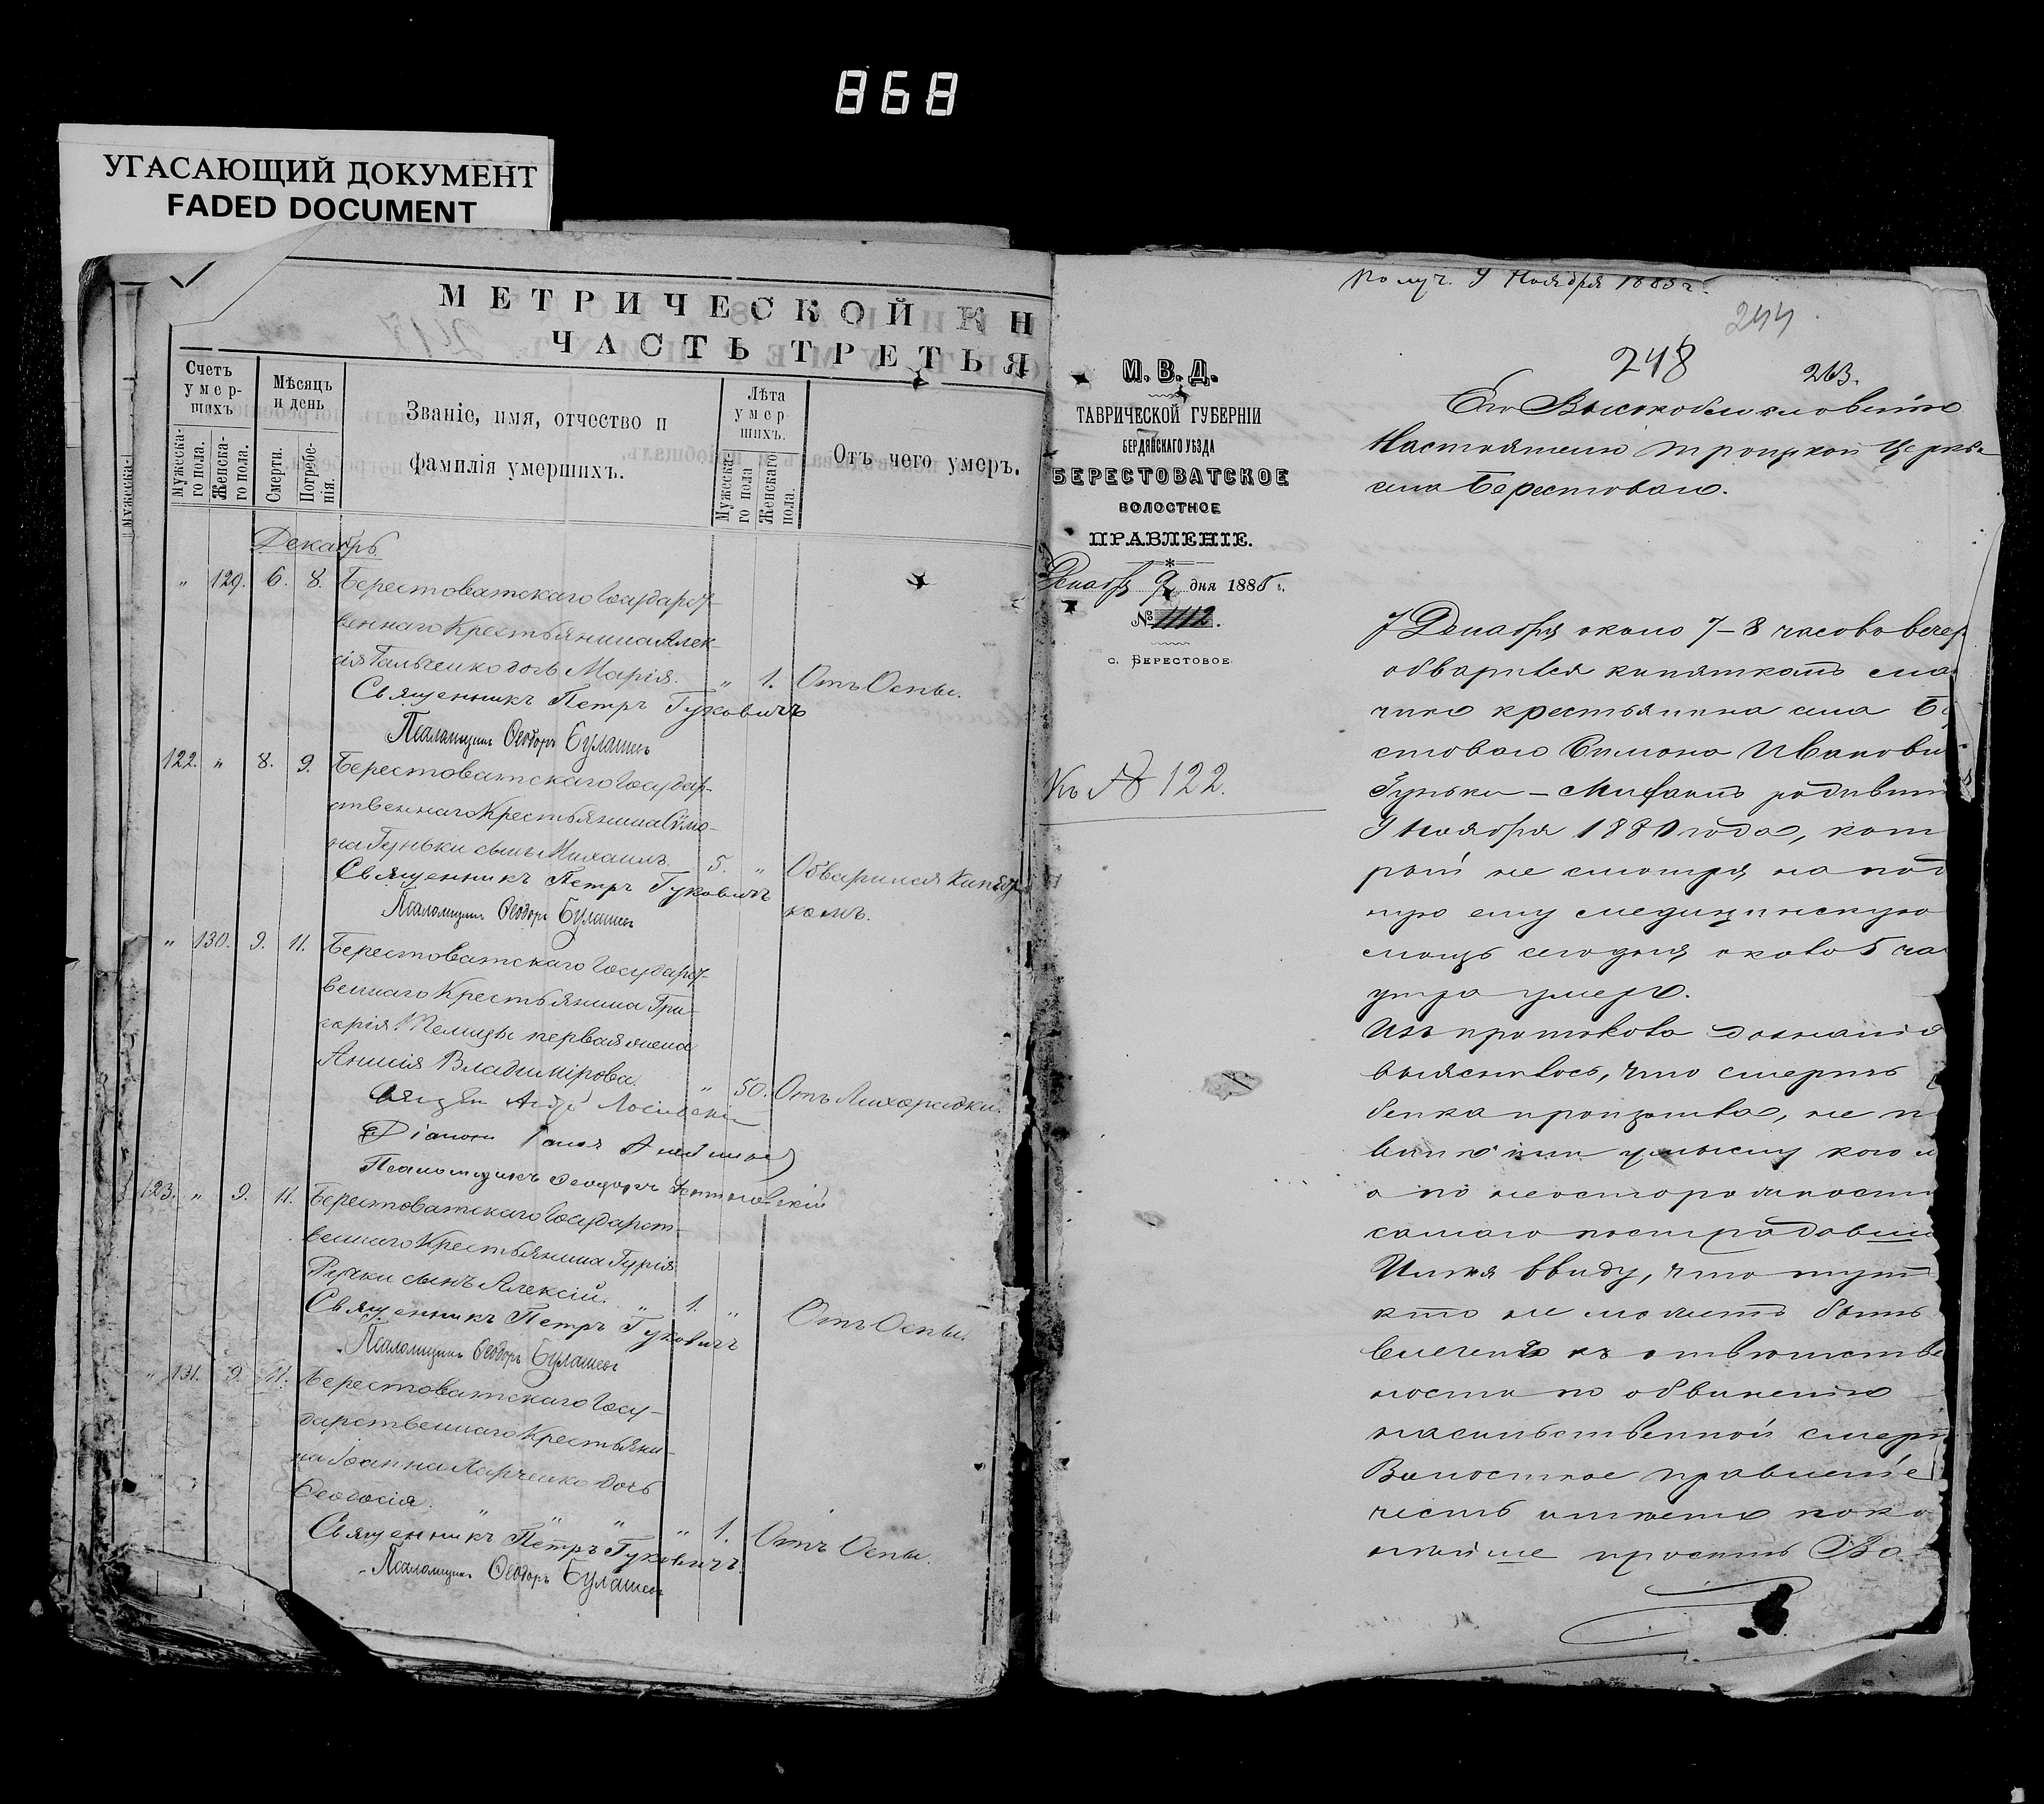 868
УГАСАЮЩИЙ ДОКУМЕНТ
FADED DOCUMENT
МЕТРИЧЕСКОЙ КН
ЧАСТЬ ТРЕТЬЯ
Счетъ умер-шихъ
Мужеска-го пола.
Женска-го пола.
Мѣсяцъ и день
Смерти.
Погребе-нія.
Званіе, имя, отчество и
фамилія умершихъ.
Лѣта умер-шихъ.
Мужеска-го пола
Женскаго пола.
Отъ чего умеръ.
Декабрь
" 129. 6. 8. Берестоватскаго Государст-
веннаго Крестьянина Алек-
сія Гальченко дочь Марія. " 1. Отъ Оспы.
Священникъ Петръ Гуковичъ
Псаломщикъ Ѳеодоръ Булашев
122. " 8. 9. Берестоватскаго Государ-
ственнаго Крестьянина Симо-
на Гуньки сынъ Михаилъ. 5. " Обварился Кипят-
комъ.
Священникъ Петръ Гуковичъ
Псаломщикъ Ѳеодоръ Булашев
" 130. 9. 11. Берестоватскаго Государст-
веннаго Крестьянина Гри-
горія первая жена
Анисія Владимірова. " 50. Отъ Лихорадки.
Псаломщикъ Ѳеодоръ
123. " 9. 11. Берестоватскаго Государст-
веннаго Крестьянина Гурія
Ручки сынъ Алексій. " 1. " Отъ Оспы.
Священникъ Петръ Гуковичъ
Псаломщикъ Ѳеодоръ Булашев
" 131. 9. 11. Берестоватскаго Госу-
дарственнаго Крестьяни-
на Іоанна Харченко дочь
Ѳеодосія. " " " " 1. Отъ Оспы.
Священникъ Петръ Гуковичъ.
Псаломщикъ Ѳеодоръ Булашев
Получ. 9 Ноября 1885 г.
244
248
263.
М. В. Д.
ТАВРИЧЕСКОЙ ГУБЕРНІИ
БЕРДЯНСКАГО УѢЗДА
БЕРЕСТОВАТСКОЕ
ВОЛОСТНОЕ
ПРАВЛЕНІЕ.
Декабря 9 дня 1885 г.
№ 1112.
с. Берестовое.
Къ № 122.
Его Высокоблагословенію
Настоятелю Троицкой Церкви
села Берестоваго.
7 Декабря около 7-8 часовъ вечер
обварился кипяткомъ ма
чикъ крестьянина села Бе
стоваго Симона Иванови
Гуньки - родивши
9 Ноября 1880 года, кот
рый не смотря на под
ную ему медицинскую
мощь сегодня около 5 ча
утра умеръ.
Изъ протокола дознанія
выяснилось, что смерть
бенка произошла, не п
винѣ или умыслу кого л
а по неосторожности
самаго пострадавш
Имѣя ввиду, что тут
кто не можетъ быть
влеченъ къ отвѣтстве
ности по обвиненію
насильственной смерт
Волостное правленіе
честь имѣетъ поко
нѣйше проситъ Ва